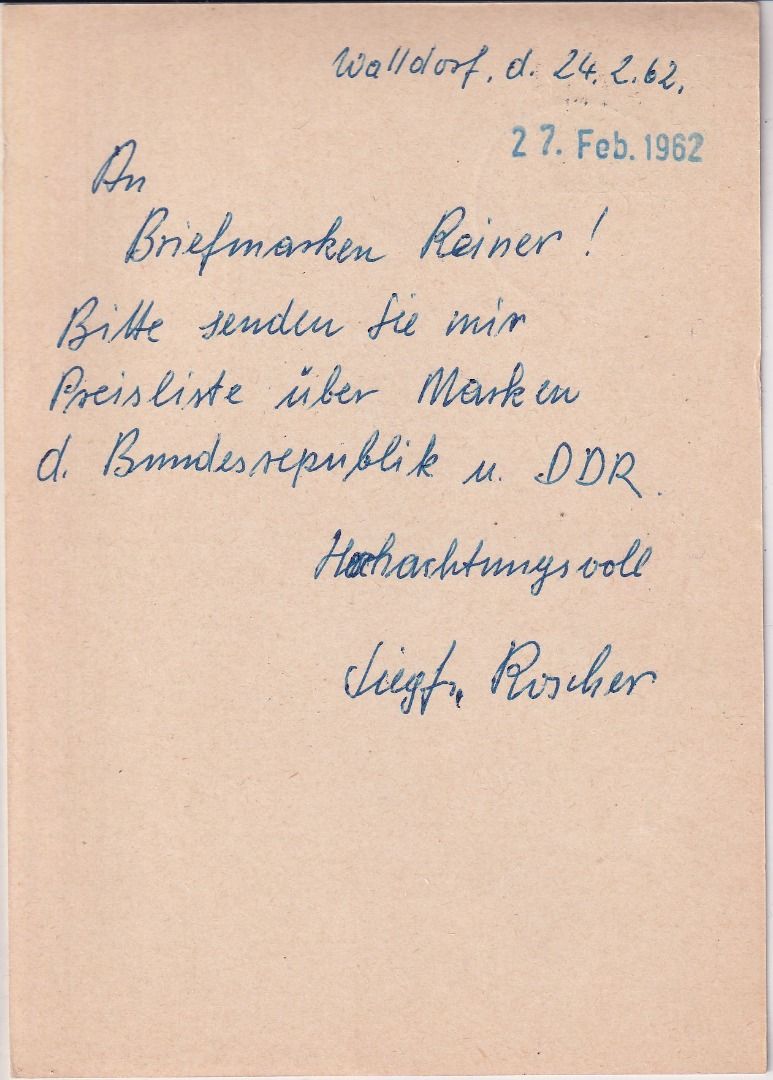 Walldorf, d. 24.2.62.
27. Feb. 1962
An
Briefmarken Reiner!
Bitte senden Sie mir
Preisliste über Marken
d. Bundesrepublik u. DDR.
Hochachtungsvoll
Siegfr. Roscher